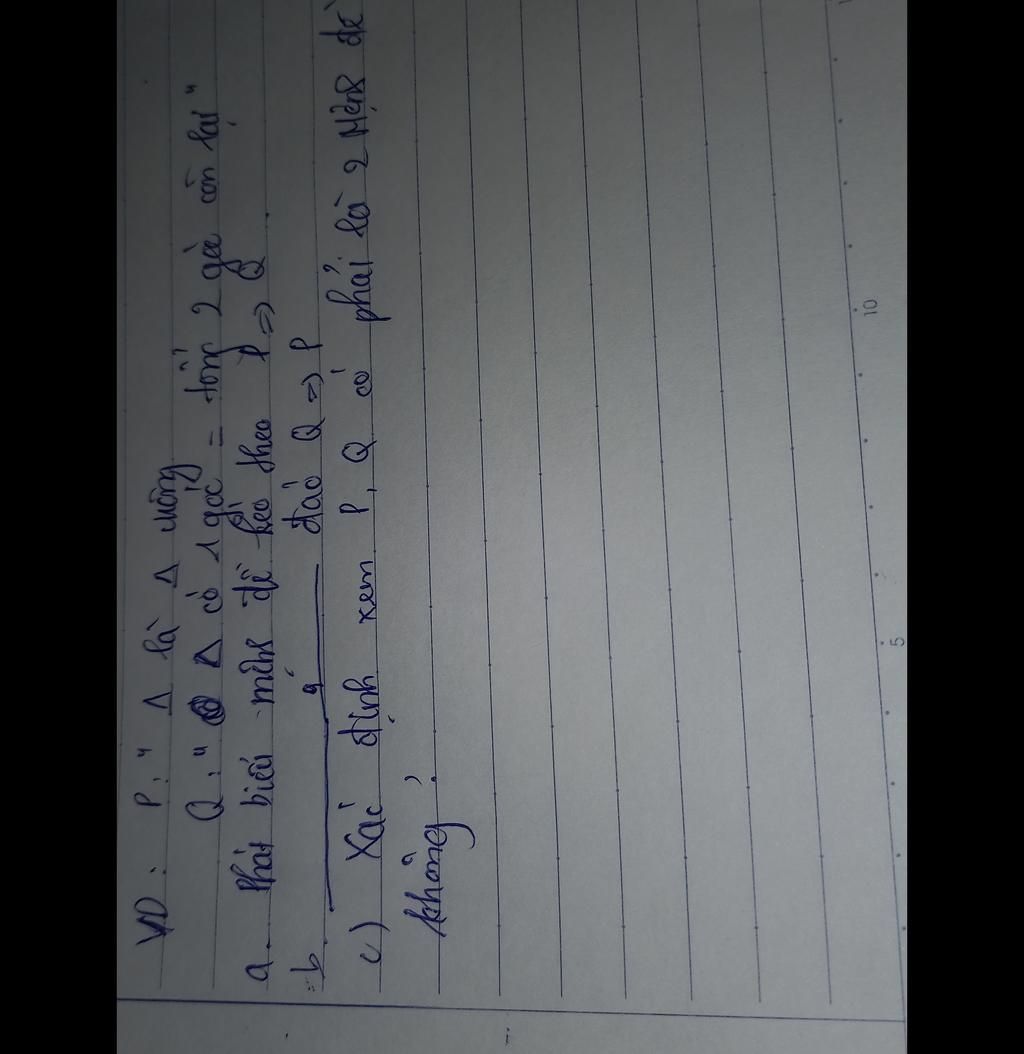 VD. P: " Δ là Δ vuông
Q: " Δ có 1 góc = tổng 2 góc còn lại "
a. Phát biểu mệnh đề kéo theo P => Q
b. " đảo Q => P
c) Xác định xem P, Q có phải là 2 Mệnh đề
không.
5
10